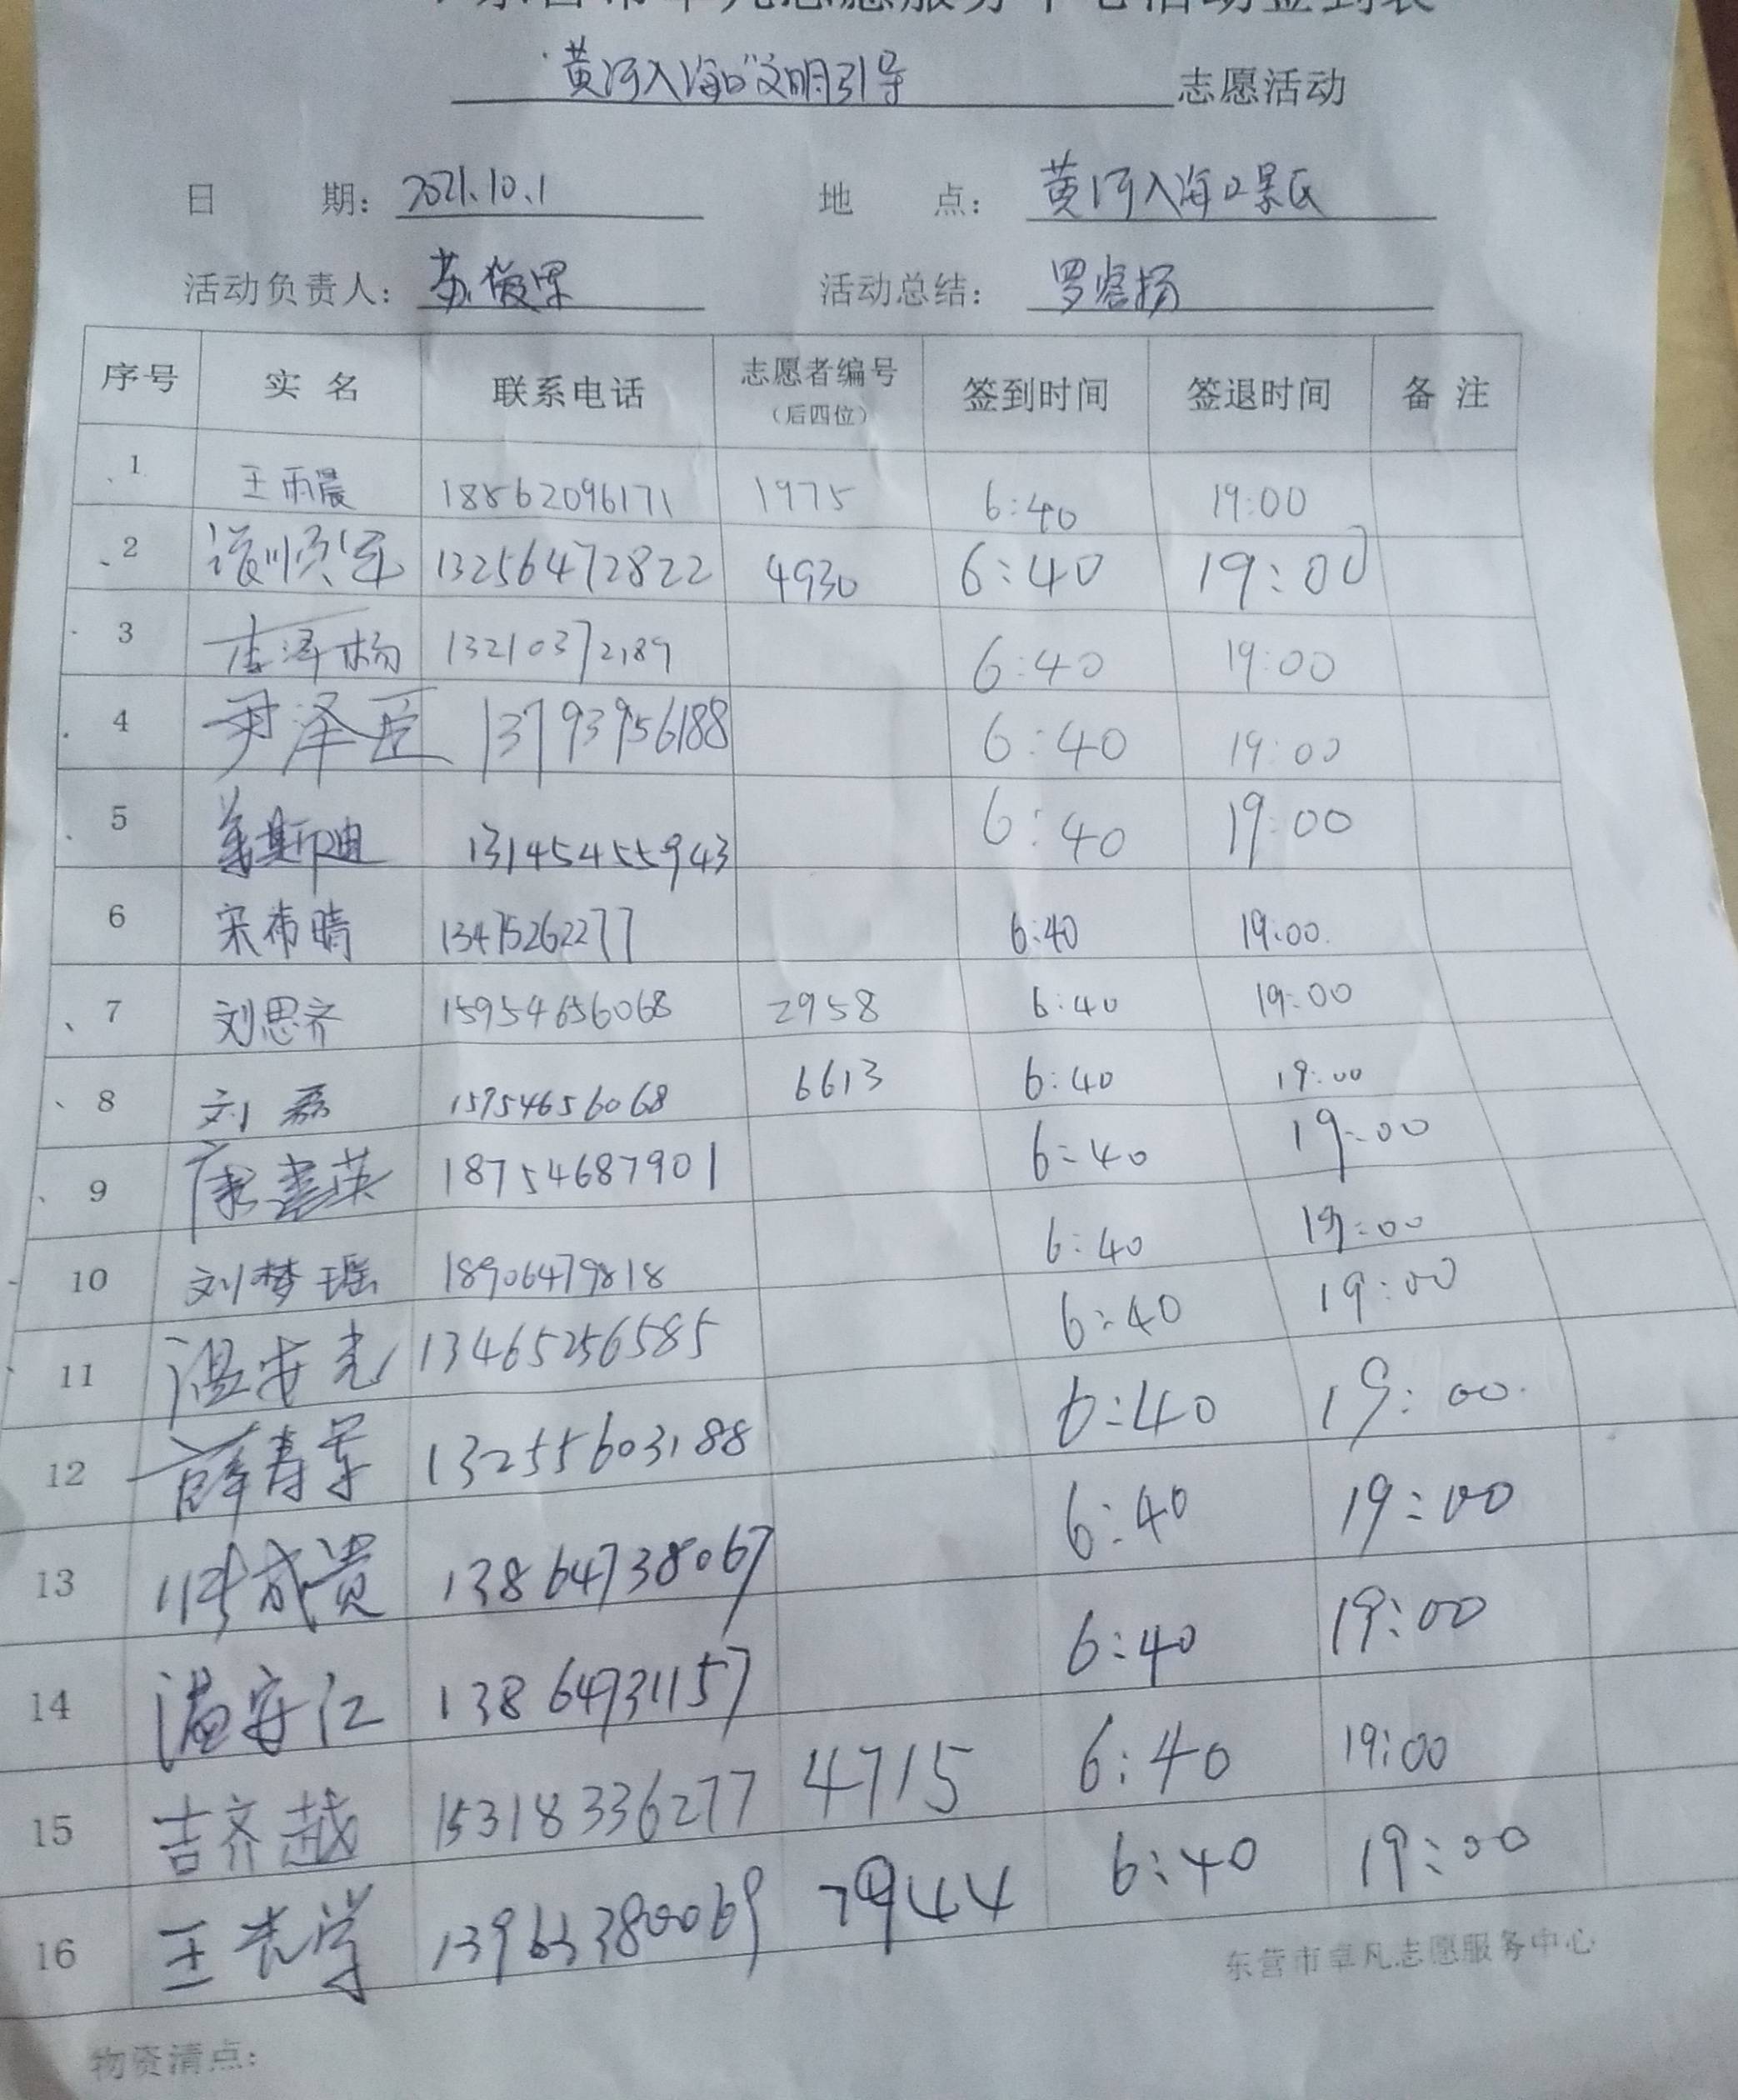 东营市卓凡志愿服务中心活动签到表
黄河入海口文明引导 志愿活动
日 期: 2021.10.1 地 点: 黄河入海口景区
活动负责人: 苏 活动总结: 罗
序号 实 名 联系电话 志愿者编号 签到时间 签退时间 备 注
(后四位)
1 王雨晨 18562096171 1975 6:40 19:00
2 13256472822 4930 6:40 19:00
3 李泽杨 13210372189 6:40 19:00
4 尹泽臣 13793956188 6:40 19:00
5 斯迪 131454455943 6:40 19:00
6 宋希晴 13475262277 6:40 19:00
7 刘思齐 15954656068 2958 6:40 19:00
8 刘磊 15954656068 6613 6:40 19:00
9 康 英 18754687901 6:40 19:00
10 刘梦瑶 18906479818 6:40 19:00
11 温安光 13465256585 6:40 19:00
12 薛寿 13255603188 6:40 19:00
13 成贵 13864738067 6:40 19:00
14 温安江 13864931157 6:40 19:00
15 吉齐越 15318336277 4715 6:40 19:00
16 王光学 13963380069 7944 6:40 19:00
东营市卓凡志愿服务中心
物资清点: